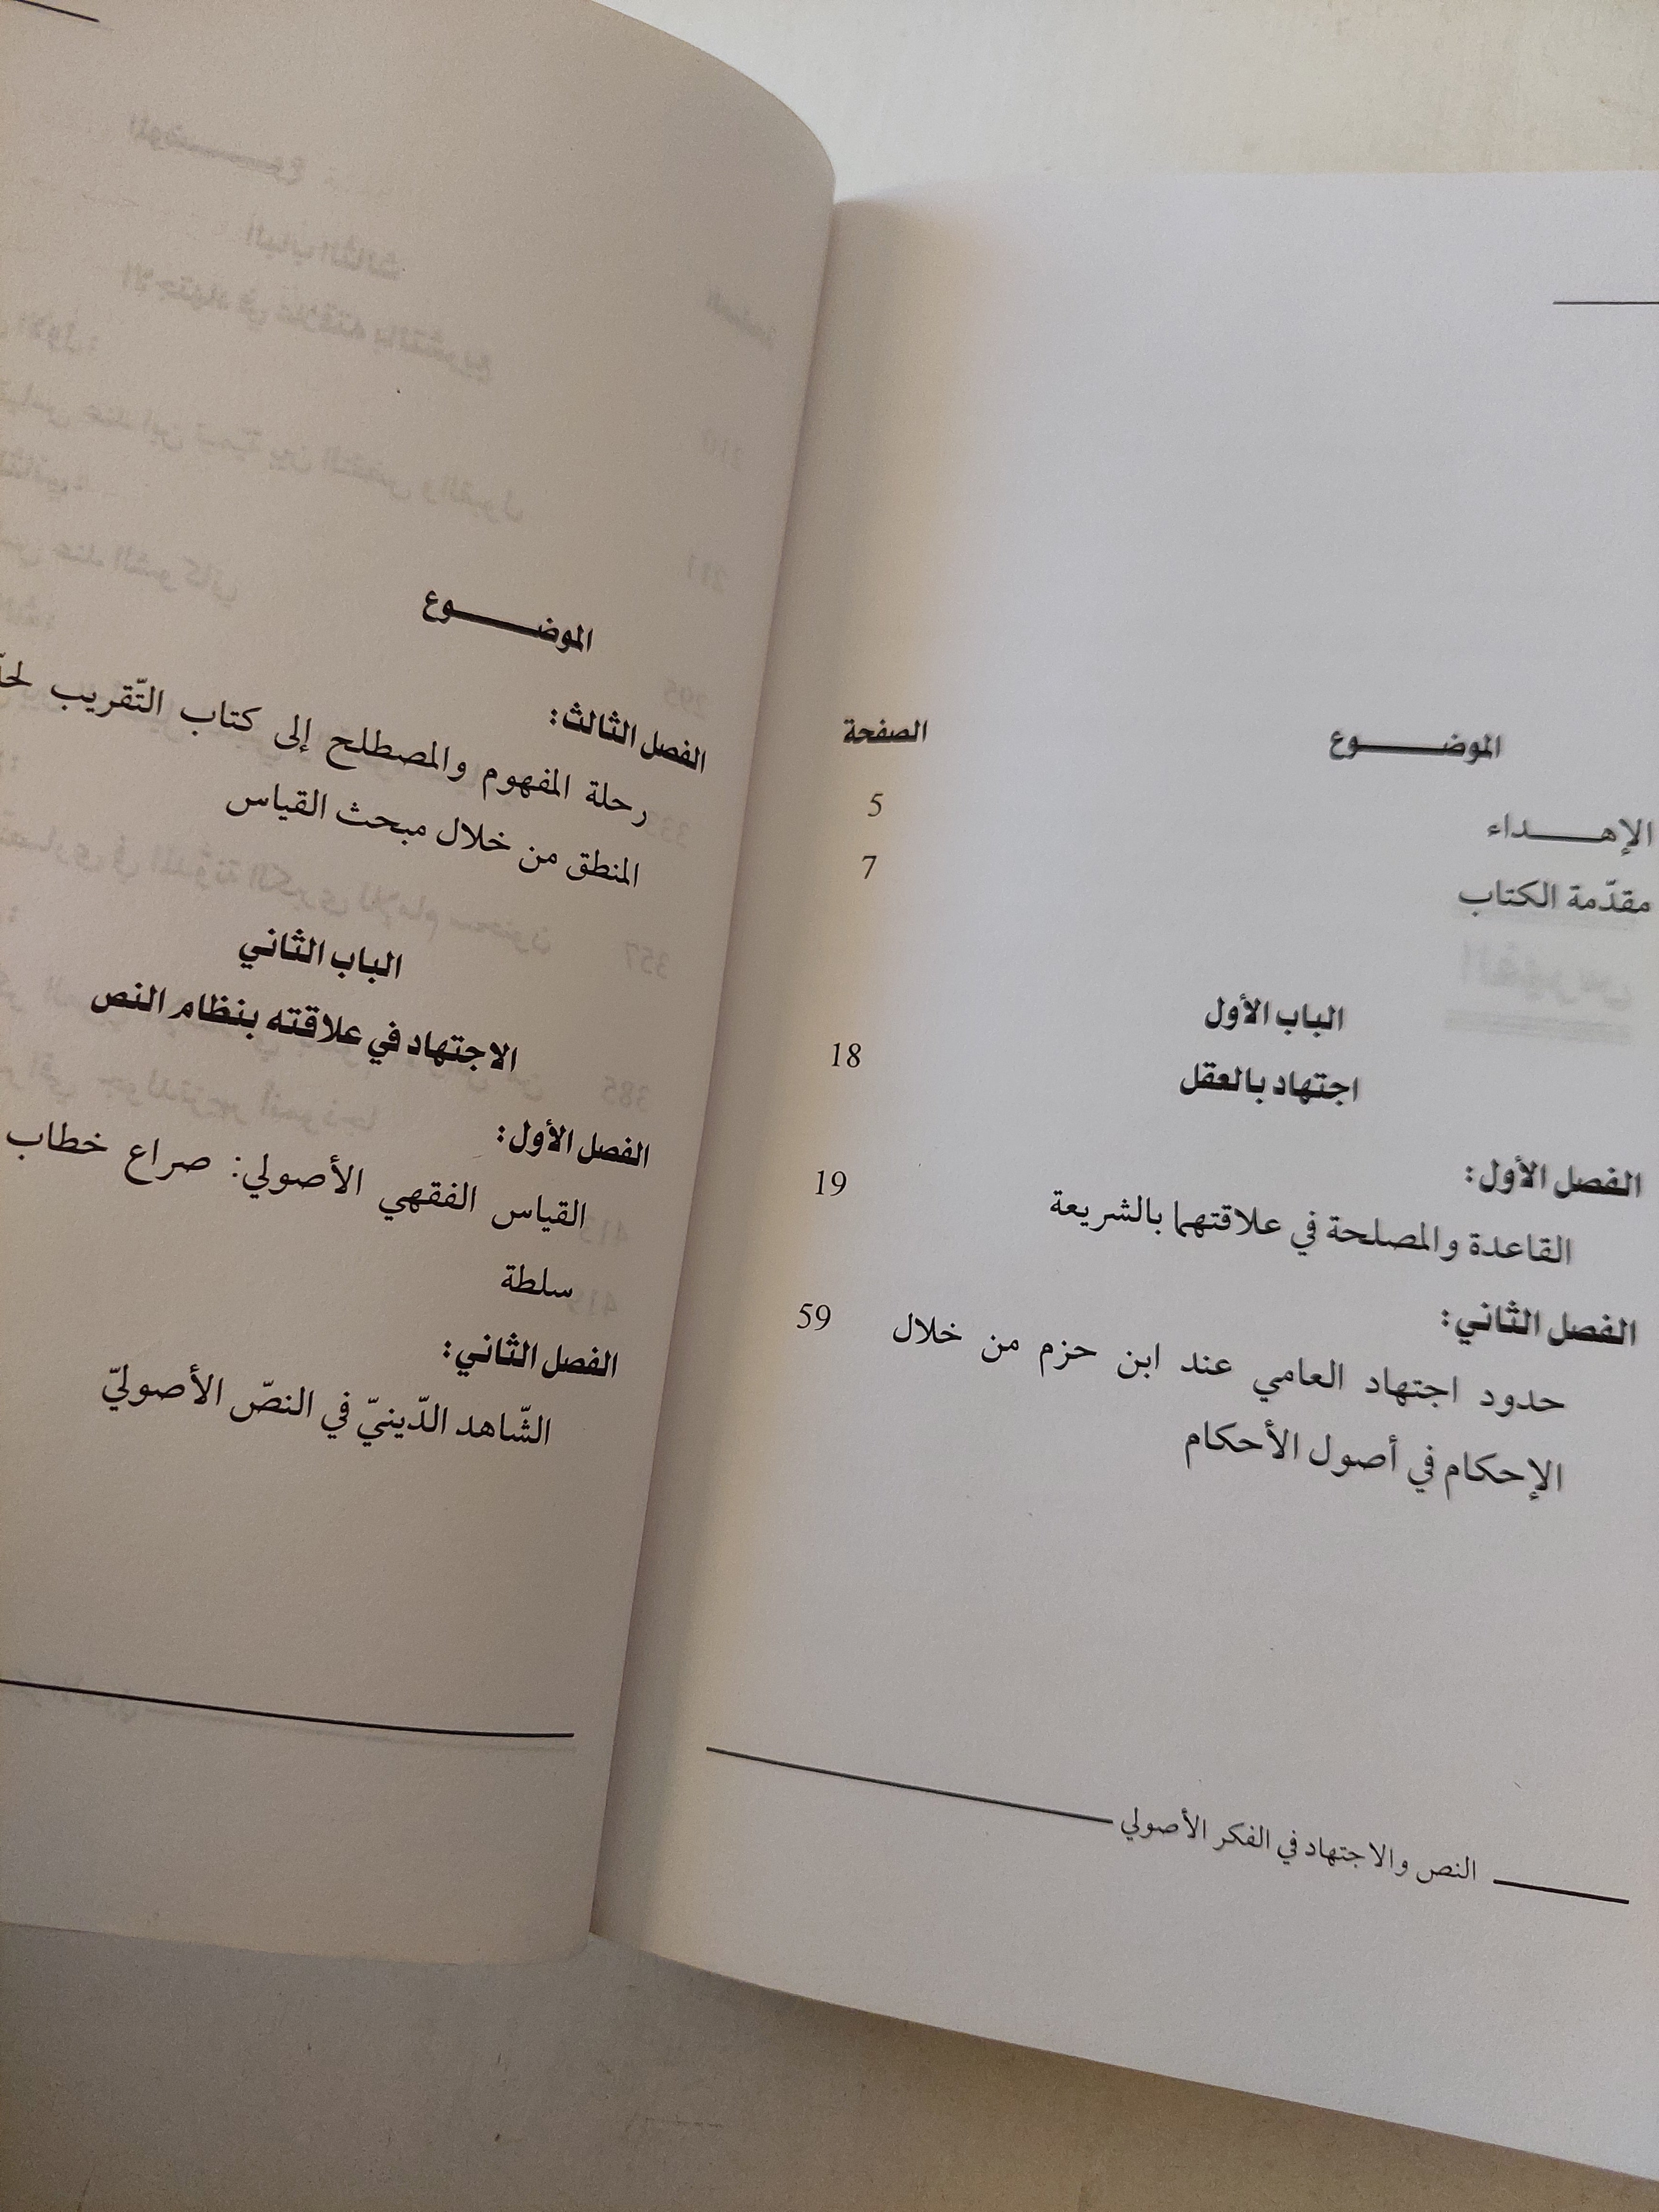 الموضـــــوع الصفحة
الإهـــــداء 5
مقدّمة الكتاب 7
الباب الأول
اجتهاد بالعقل 18
الفصل الأول:
القاعدة والمصلحة في علاقتهما بالشريعة 19
الفصل الثاني:
حدود اجتهاد العامي عند ابن حزم من خلال 59
الإحكام في أصول الأحكام
النص والاجتهاد في الفكر الأصولي
الموضـــــوع
الفصل الثالث:
رحلة المفهوم والمصطلح إلى كتاب التّقريب
المنطق من خلال مبحث القياس
الباب الثاني
الاجتهاد في علاقته بنظام النص
الفصل الأول:
القياس الفقهي الأصولي: صراع خطاب
سلطة
الفصل الثاني:
الشّاهد الدّينيّ في النصّ الأصوليّ